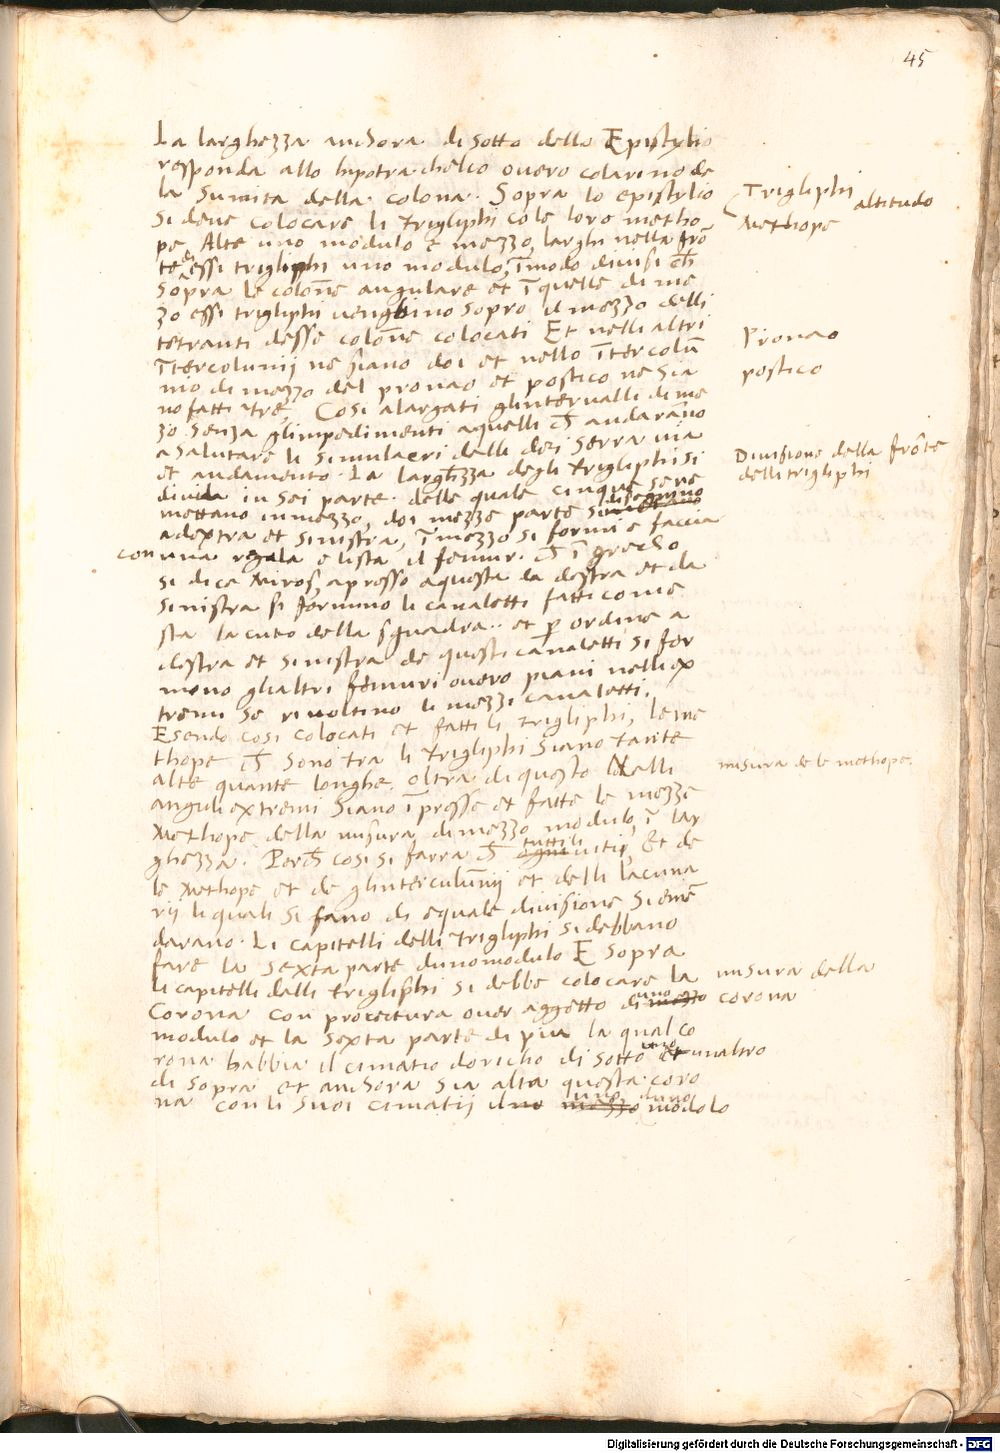 45
La larghezza anchora di sotto dello Epistylio
responda allo hipotrachelco overo colarino de
la Sumita della colona. Sopra lo epistylio
si deve colocare li trigliphi cole loro metho
pe. Alte uno modulo e mezzo, larghi nella frõ
te di essi trigliphi uno modulo, ĩ modo divisi ch̃
Sopra le colon̄e angulare et ĩ quelle di me
zo essi trigliphi venghino sopra il mezzo delli
tetranti desse colon̄e colocati Et nelli altri
ĩtercolunij ne siano doi et nello ĩtercolũ
nio di mezzo del pronao et postico ne sia
no fatti tre, Cosi alargati glintervalli di me
zo senza glimpedimenti a quelli ch̃ andarano
a salutare li simulacri delli dei serra via
et andamento. La largh̃zza degli trigliphi si
divida in sei parte. delle quale cinque se ne
mettano in mezzo, doi mezze parte si disegnino
adextra et sinistra, ĩ mezzo si formi e faccia
con una regula e lista il femur. ch̃ ĩ grecho
si dica Miros, apresso a questa da destra et da
sinistra si formino li canaletti fatti come
sta la cuto della squadra.. et ꝑ ordine a
destra et sinistra de questi canaletti si for
mono glialtri femuri overo piani nelli ex
tremi se rivoltino li mezzi canaletti.
Esendo cosi colocati et fatti li trigliphi, le me
thope ch̃ sono tra li trigliphi siano tante
alte quante longhe. oltra di questo nelli
anguli extremi siano ĩpresse et fatte le mezze
Methope della misura di mezzo modulo, ĩ lar
ghezza. Perch̃ cosi si farra ch̃ ogni tutti li vitij, Et de
le Methope et de glinterculun̄ij et delli lacuna
rij li quali si fano di equale divisione si emẽ
darano. Li capitelli delli trigliphi si debbano
fare la sexta parte dunomodulo E sopra
li capitelli delli trigliphi si debbe colocare la
Corona con proiectura over aggetto di mezzo uno
modulo et la sexta parte di piu la qual co
rona habbia il cimatio doricho di sotto uno et unaltro
di sopra et anchora sia alta questa coro
na con li suoi cimatij uno mezzo duno modolo
Trigliphi
Methope
altitudo
Pronao
postico
Divisione della frõte
delli trigliphi
misura de le methope.
misura della
corona
Digitalisierung gefördert durch die Deutsche Forschungsgemeinschaft - DFG